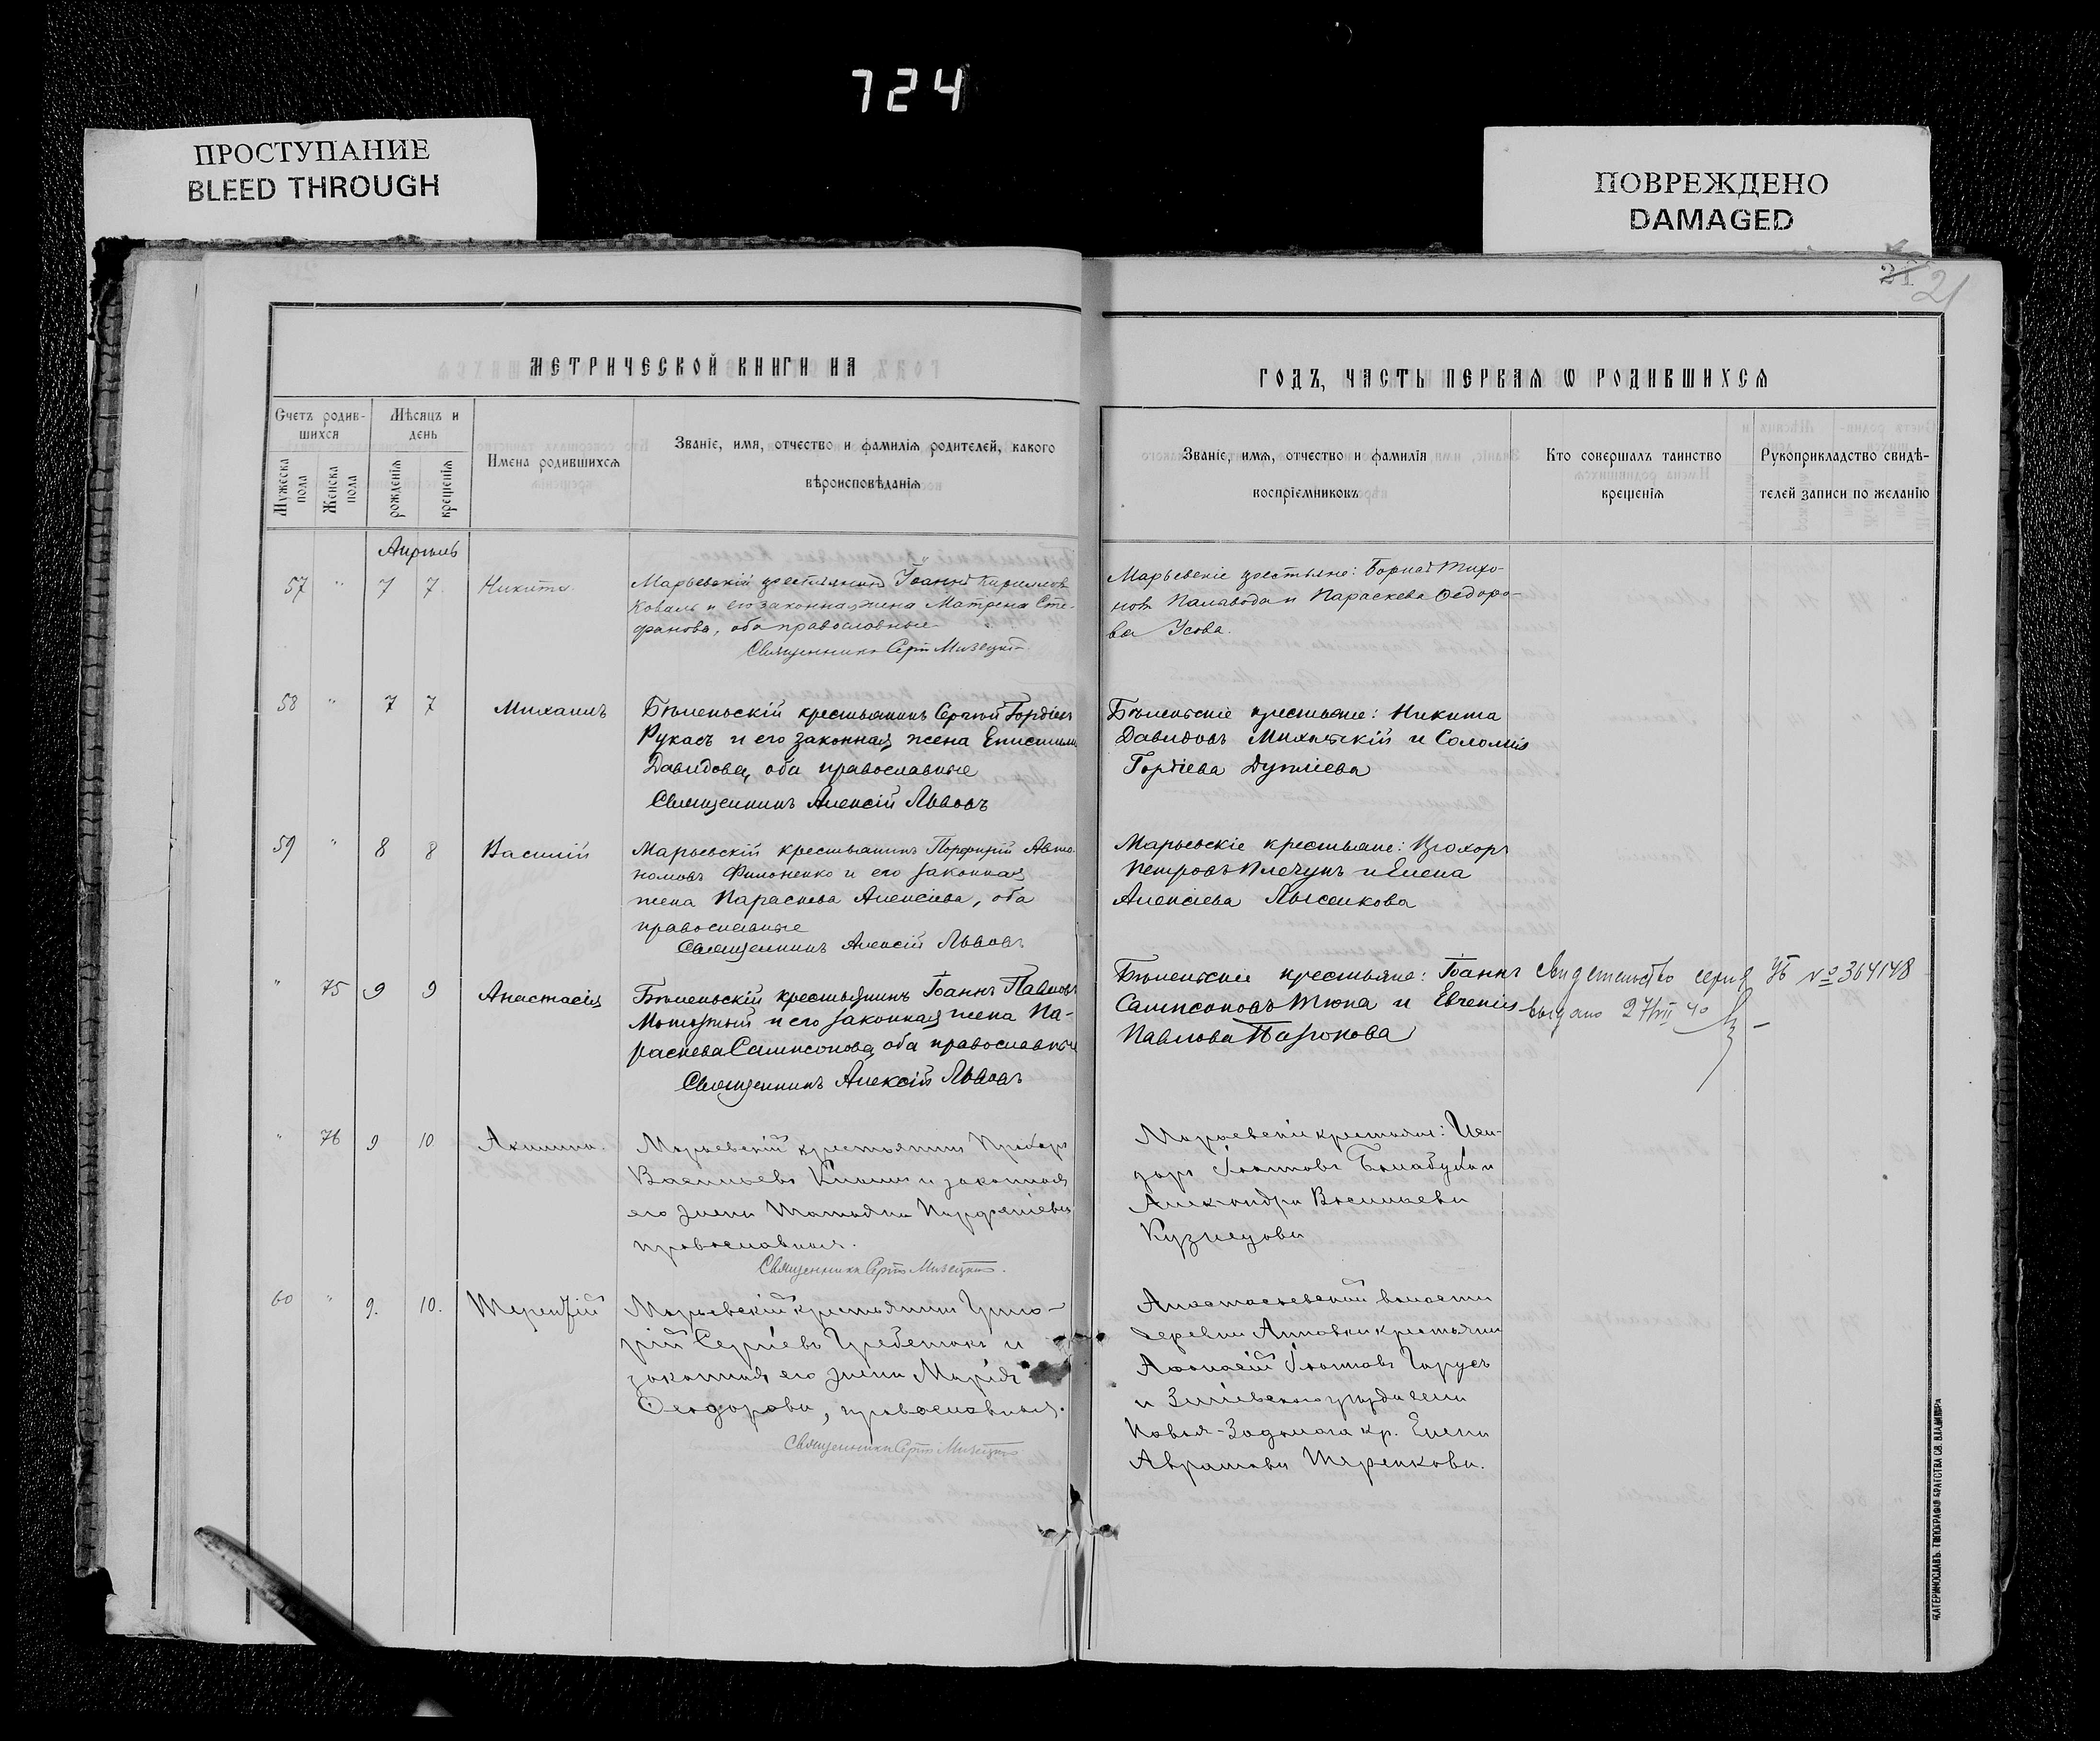 724
ПРОСТУПАНИЕ
BLEED THROUGH
ПОВРЕЖДЕНО
DAMAGED
21
21
МЕТРИЧЕСКОЙ КНИГИ НА
ГОДЪ, ЧАСТЬ ПЕРВАѦ Ѡ РОДИВШИХСѦ
Счетъ родив-
шихся
Мѣсяцъ и
день
Мужеска
пола
Женска
пола
рожденіѧ
крещеніѧ
Имена родившихсѧ
Званіе, имя, отчество и фамиліѧ родителей, какого
вѣроисповѣданіѧ
Званіе, имѧ, отчество и фамиліѧ
воспріемниковъ
Кто совершалъ таинство
крещеніѧ
Рукоприкладство свидѣ-
телей записи по желанію
Апрѣль
57 " 7 7. Никита.
Марьевскій крестьянинъ Іоаннъ Кирилловъ
Коваль и его законная жена Матрена Сте-
фанова, оба православные
Священникъ Сергій
Марьевскіе крестьяне: Борисъ Тихо-
новъ Паливода и Параскева Федоро-
ва Усова.
58 " 7 7 Михаилъ
Бѣленьскій крестьянинъ Сергѣй Гордіевъ
Рукасъ и его законная жена
Давидова, оба православные
Священникъ Алексій Львовъ
Бѣленьскіе крестьяне: Никита
Давидовъ и Соломія
Гордіева
59 " 8 8 Василій
Марьевскій крестьянинъ Порфирій Авто-
номовъ Филоненко и его законная
жена Параскева Алексіева, оба
православные
Священникъ Алексій Львовъ
Марьевскіе крестьяне: Прохоръ
Петровъ Плечунъ и Елена
Алексіева Лысенкова
" 75 9 9 Анастасія
Бѣленьскій крестьянинъ Іоаннъ Павловъ
и его законная жена Па-
раскева Сампсонова, оба православные
Священникъ Алексій Львовъ
Бѣленьскіе крестьяне: Іоаннъ
Сампсоновъ Тюпа и Евгенія
Павлова
Свидетельство серия УБ № 364148
выдано 27/VII 40
" 76 9 10 Акилина.
Марьевскій крестьянинъ Прохоръ
Васильевъ и законная
его жена Татьяна Парфеніева
православные.
Священникъ Сергій
Марьевскіе крестьяне: Иси-
доръ Іоанновъ и
Александра Васильева
Кузнецова
60 " 9. 10. Терентій
Марьевскій крестьянинъ Григо-
рій Сергіевъ Гребенюкъ и
законная его жена Марія
Ѳеодорова, православные.
Священникъ Сергій
Анастасьевской волости
деревни Анновки крестьянинъ
Аѳанасій Іоанновъ
и Зміевского уѣзда села
кр. Елена
Аврамова
ЕКАТЕРИНОСЛАВЪ. ТИПОГРАФІЯ БРАТСТВА СВ. ВЛАДИМІРА